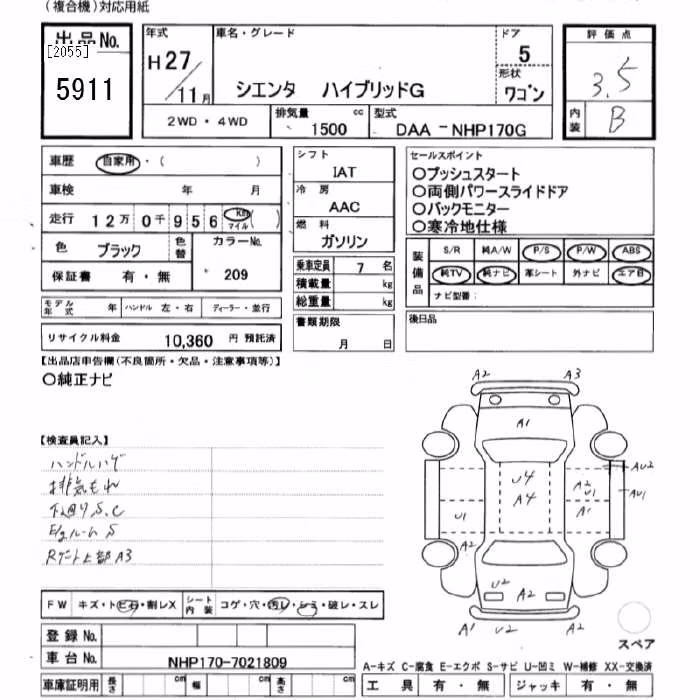 (複合機)対応用紙
出品No.
[2055]
5911
年式
H27/11月
車名・グレード
シエンタ ハイブリッドG
ドア
5
形状
ワゴン
評価点
3.5
内装
B
2WD・4WD
排気量 cc
1500
型式
DAA -NHP170G
車歴 自家用・( )
車検 年 月
走行 12万0千956 Km マイル ( )
色 ブラック
色替
カラーNo.
209
保証書 有・無
モデル年式 年 ハンドル 左・右 ディーラー・並行
リサイクル料金 10,360 円 預託済
シフト
IAT
冷房
AAC
燃料
ガソリン
乗車定員 7 名
積載量 kg
総重量 kg
書類期限
月 日
セールスポイント
○プッシュスタート
○両側パワースライドドア
○バックモニター
○寒冷地仕様
装備品
S/R 純A/W P/S P/W ABS
純TV 純ナビ 革シート 外ナビ エアB
ナビ型番:
後日品
【出品店申告欄(不良箇所・欠品・注意事項等)】
○純正ナビ
【検査員記入】
ハンドルハゲ
排気もれ
下廻りS.C
E/gルームS
Rゲート上部A3
A2 A3
A1
U4
A4
A2
U1
A1
AU2
AU1
U1
A2
U2
A2
A1 U2 A2
スペア
FW キズ・トビ石・割レX
シート内装 コゲ・穴・汚レ・シミ・破レ・スレ
登録No.
車台No. NHP170-7021809
車庫証明用 長さ cm 幅 cm 高さ cm
A-キズ C-腐食 E-エクボ S-サビ U-凹ミ W-補修 XX-交換済
工具 有・無 ジャッキ 有・無